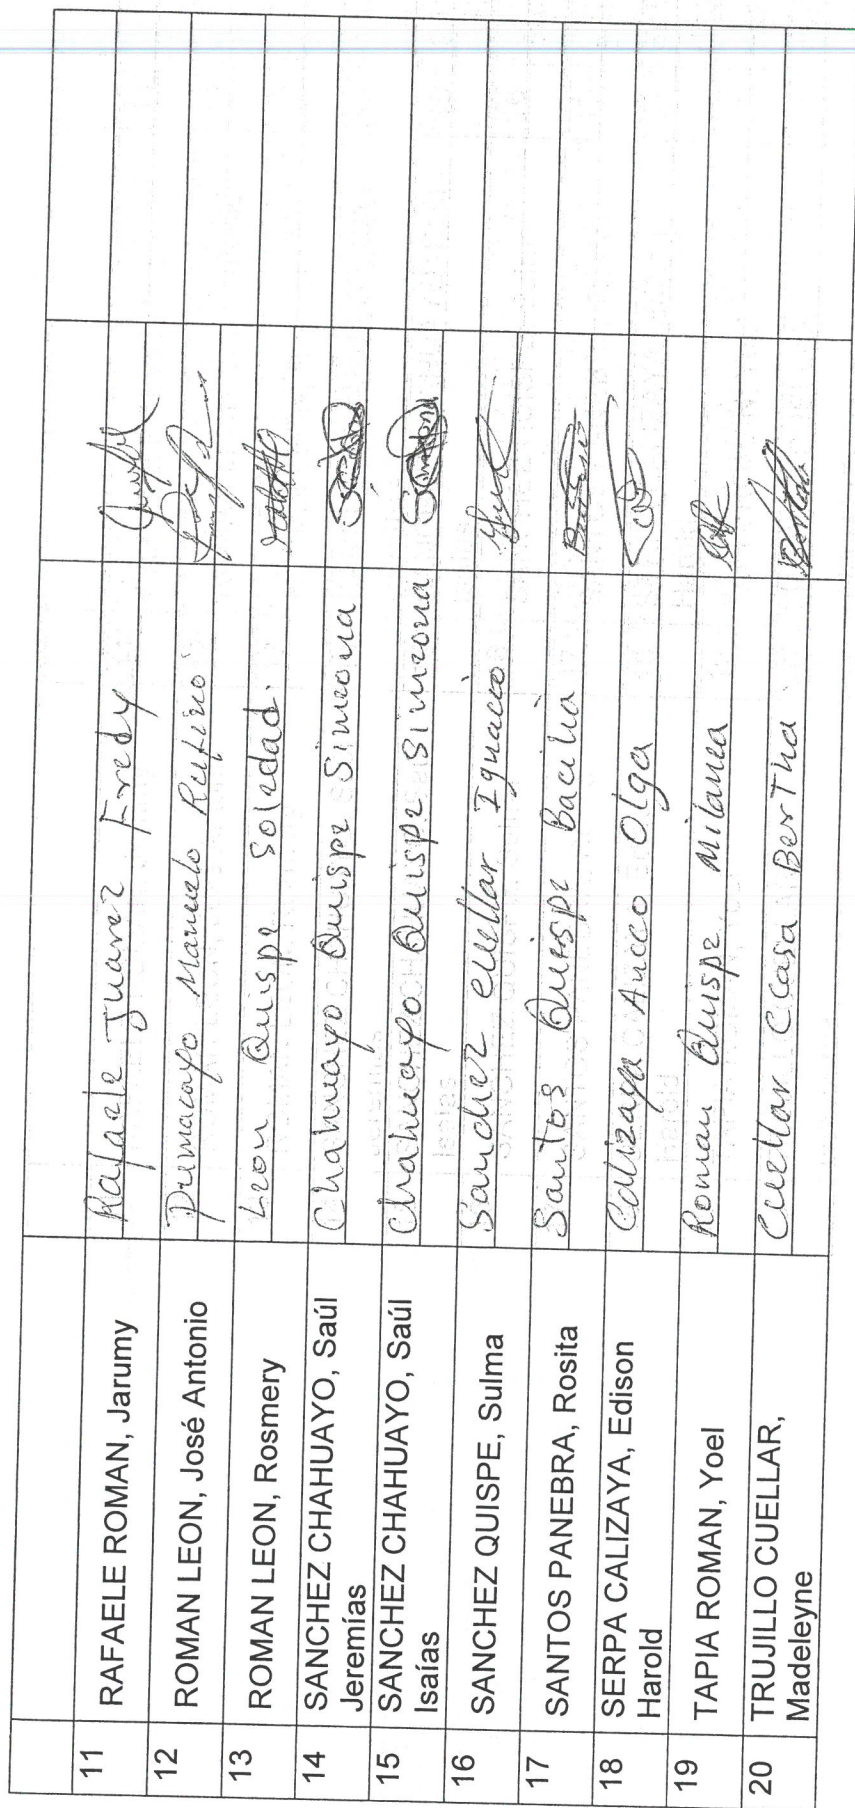 11 RAFAELE ROMAN, Jarumy Rafaele Juarez Fredy
12 ROMAN LEON, José Antonio Pumacayo Manuelo Rufino
13 ROMAN LEON, Rosmery Leon Quispe Soledad.
14 SANCHEZ CHAHUAYO, Saúl Chahuayo Quispe Simeona
Jeremías
15 SANCHEZ CHAHUAYO, Saúl Chahuayo Quispe Simeona
Isaías
16 SANCHEZ QUISPE, Sulma Sanchez Cuellar Ignacio
17 SANTOS PANEBRA, Rosita Santos Quispe Bacilia
18 SERPA CALIZAYA, Edison Calizaya Aucco Olga
Harold
19 TAPIA ROMAN, Yoel Roman Quispe Milanea
20 TRUJILLO CUELLAR, Cuellar Ccasa Bertha
Madeleyne